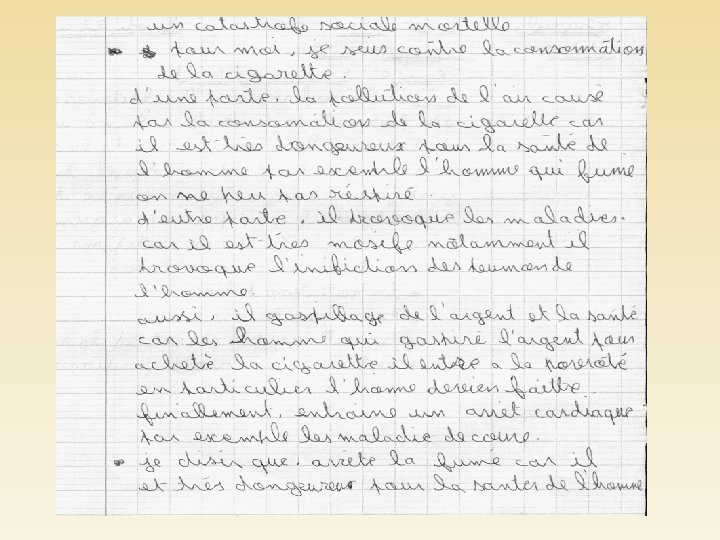 un catastrofe sociale mortelle
pour moi, je seus contre la consonmation
de la cigarette.
d'une parte, la pollution de l'air causé
par la consomation de la cigarette car
il est très dongeureux pour la santé de
l'homme par exemple l'homme qui fume
on ne peu pas réspiré.
d'eutre parte, il provoque les maladies.
car il est très mosife notamment il
provoque l'inifiction des poumons de
l'homme.
aussi, il gaspillage de l'argent et la santé
car les homme qui gaspiré l'argent pour
acheté la cigarette il entre a la porvrété
en particulier l'home devien faible.
finallement, entraine um arrêt cardiaque
par exemple les maladie de coeure.
je disir que. arrête la fumé car il
et très dongeureux pour la santer de l'homme